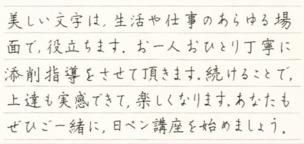 美しい文字は、生活や仕事のあらゆる場
面で、役立ちます。お一人おひとり丁寧に
添削指導をさせて頂きます。続けることで、
上達も実感できて、楽しくなります。あなたも
ぜひご一緒に、日ペン講座を始めましょう。